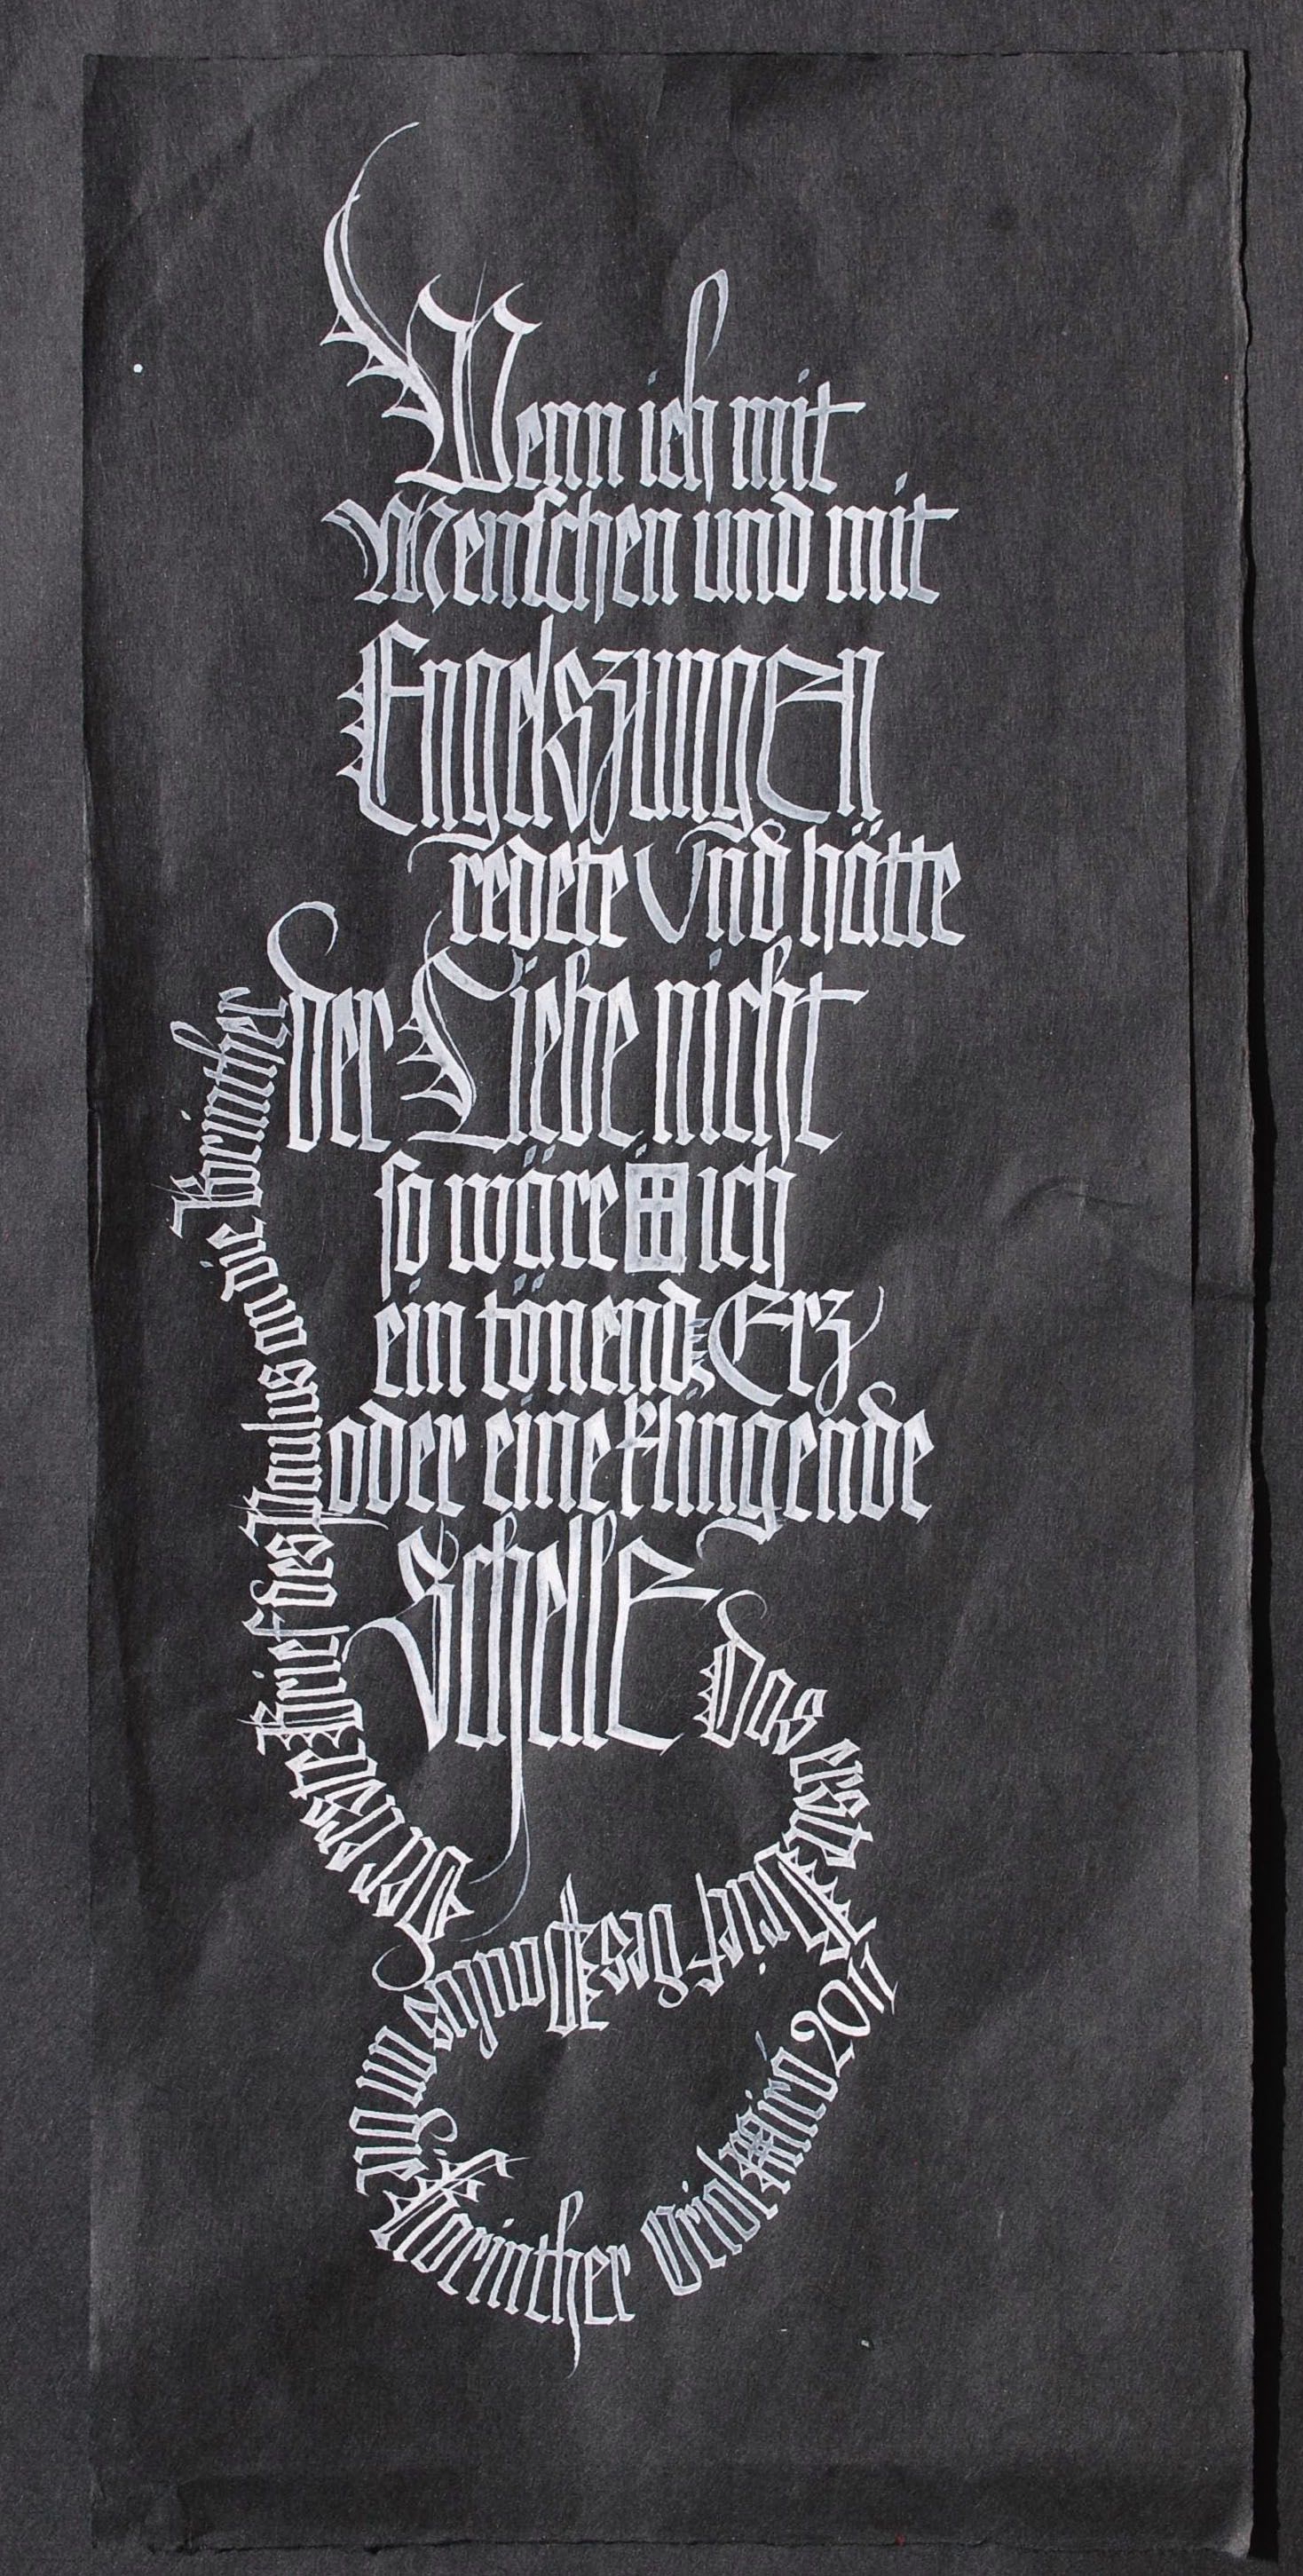 Wenn ich mit
Menschen und mit
Engelszungen
redete Und hätte
der Liebe nicht
so wäre ich
ein tönend Erz
oder eine klingende
Schelle
Das erste Brief des Paulus an die Korinther Oriol Miró 2011
der erste Brief des Paulus an die Korinther